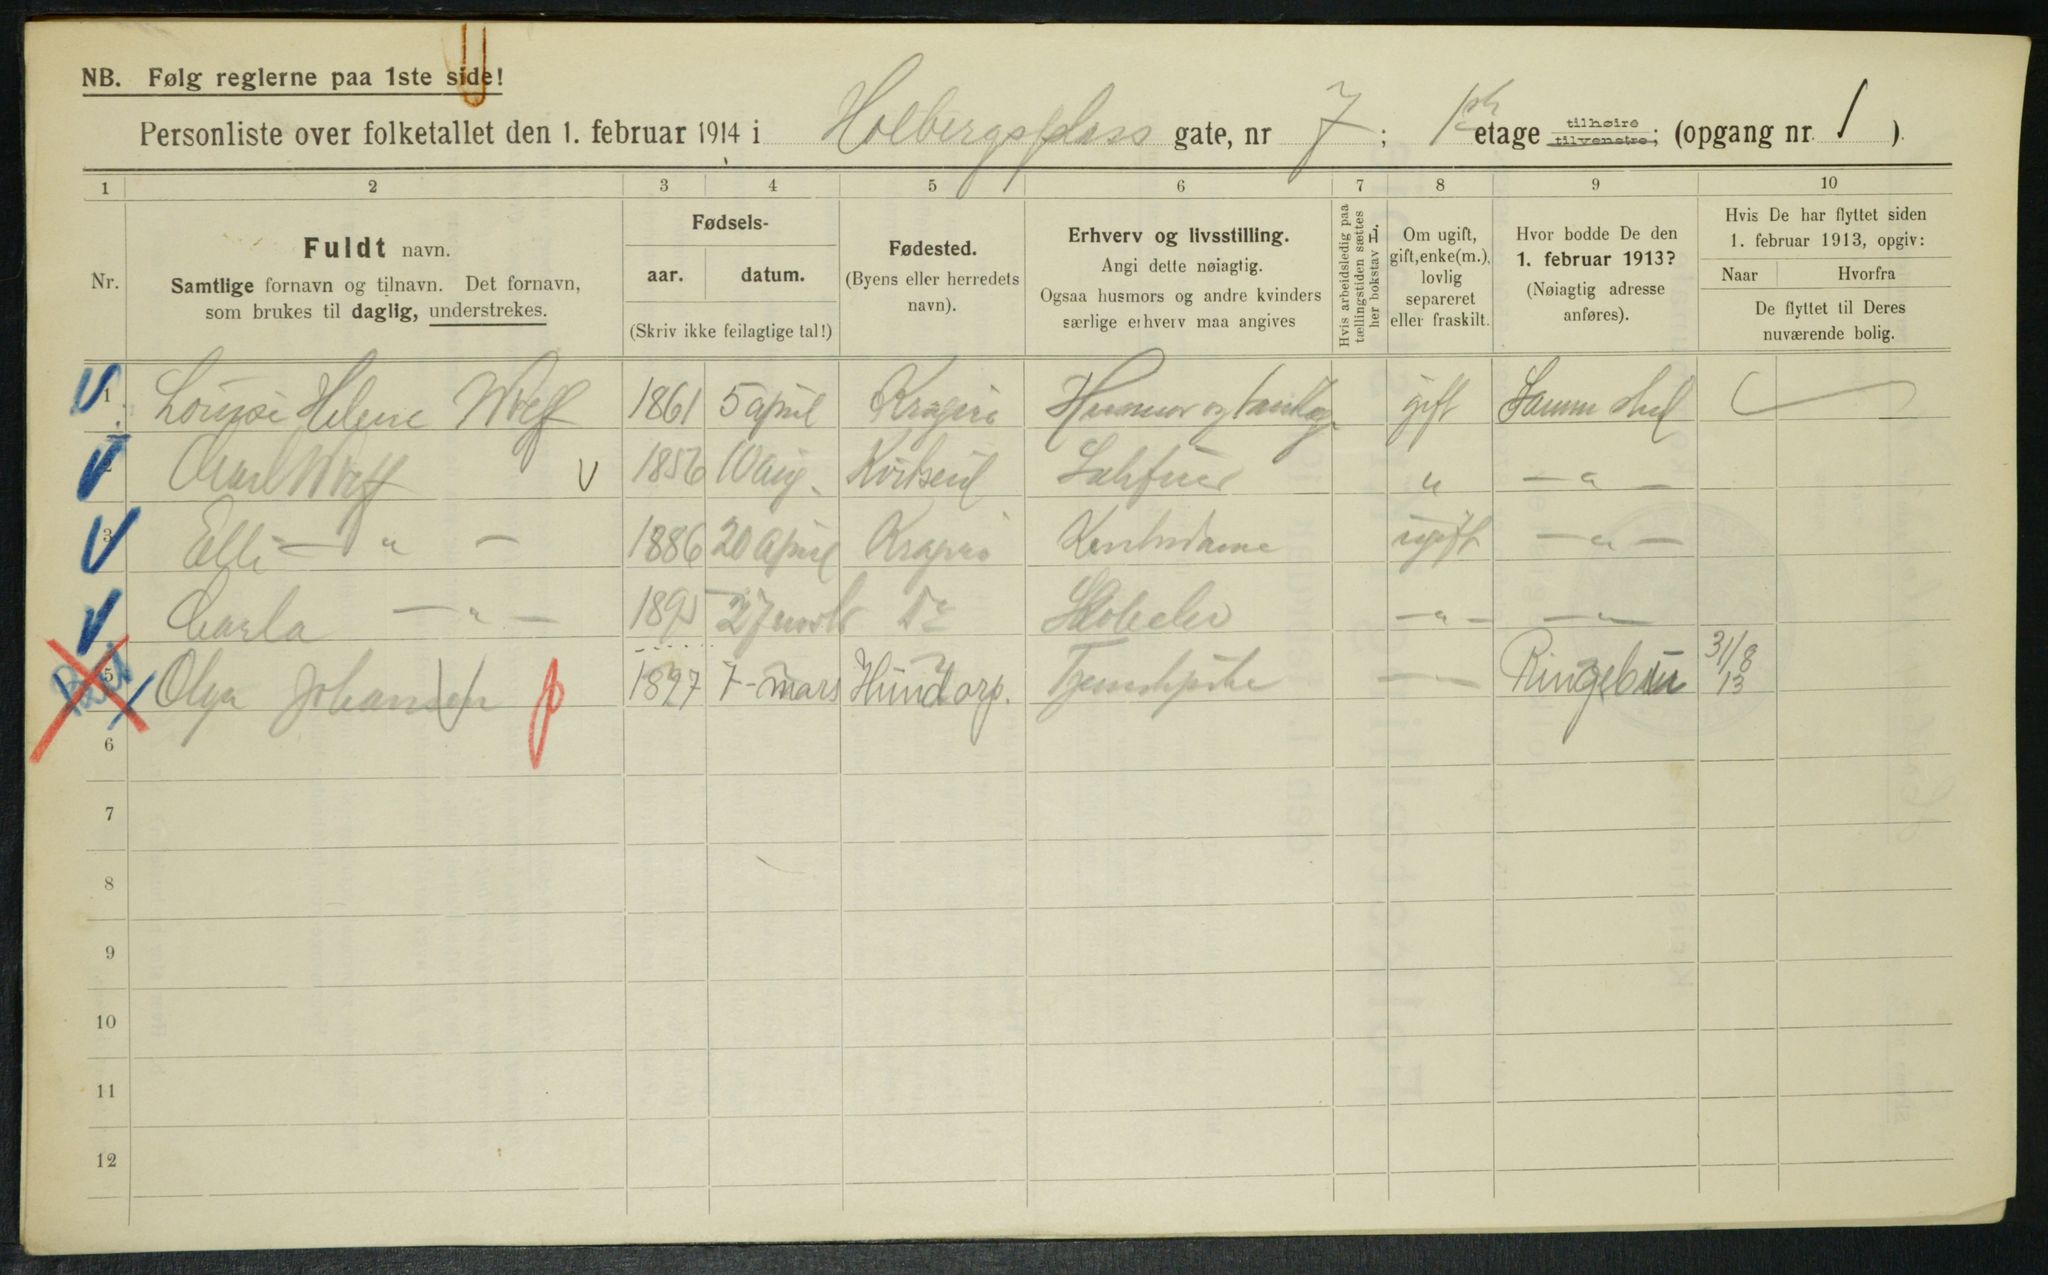 NB. Følg reglerne paa 1ste side!
Personliste over folketallet den 1. februar 1914 i Holbergsplass gate, nr 7; 1 etage tilhøire tilvenstre; (opgang nr. 1).
1 2 3 4 5 6 7 8 9 10
Nr.
Fuldt navn.
Samtlige fornavn og tilnavn. Det fornavn,
som brukes til daglig, understrekes.
Fødsels-
aar. datum.
(Skriv ikke feilagtige tal!)
Fødested.
(Byens eller herredets
navn).
Erhverv og livsstilling.
Angi dette nøiagtig.
Ogsaa husmors og andre kvinders
særlige erhverv maa angives
Hvis arbeidsledig paa
tællingstiden sættes
her bokstav L.
Om ugift,
gift, enke(m.),
lovlig
separeret
eller fraskilt.
Hvor bodde De den
1. februar 1913?
(Nøiagtig adresse
anføres).
Hvis De har flyttet siden
1. februar 1913, opgiv:
Naar Hvorfra
De flyttet til Deres
nuværende bolig.
1 Louise Helene Wolff 1861 5 april Kragerø Husmor og gift Samme sted
2 Carl Wolff V 1856 10 aug. " — " —
3 Elli — " — 1886 20 april Kragerø Kontordame ugift — " —
4 Carla — " — 1895 27 Do — " — — " —
5 Olga Johansen 1897 7 - mars Hundorp. Tjenestepike — Ringebu 31/8 13
6
7
8
9
10
11
12